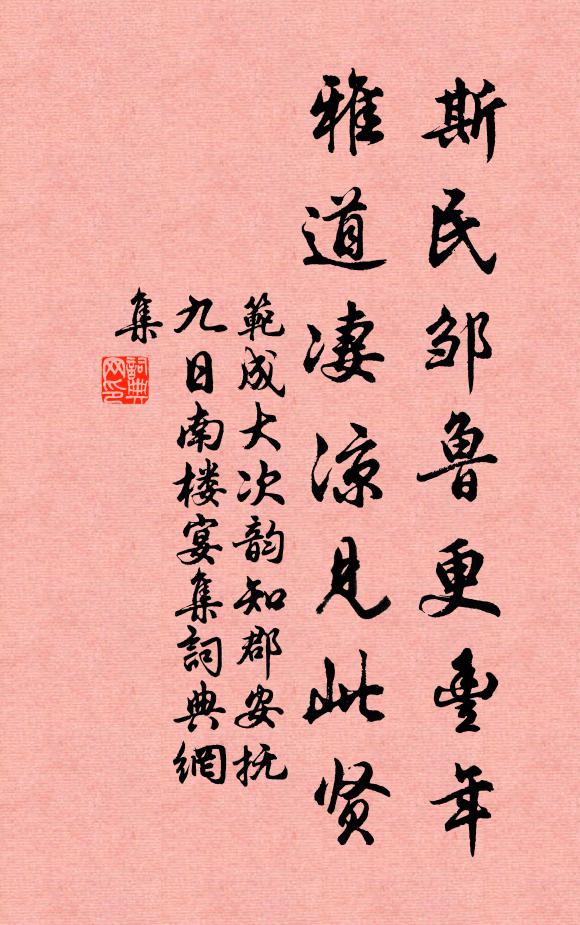 斯民邹鲁更豊年
雅道凄凉见此贤
範成大次韵知郡安抚
九日南楼宴集詞典網
集
詞典
网印